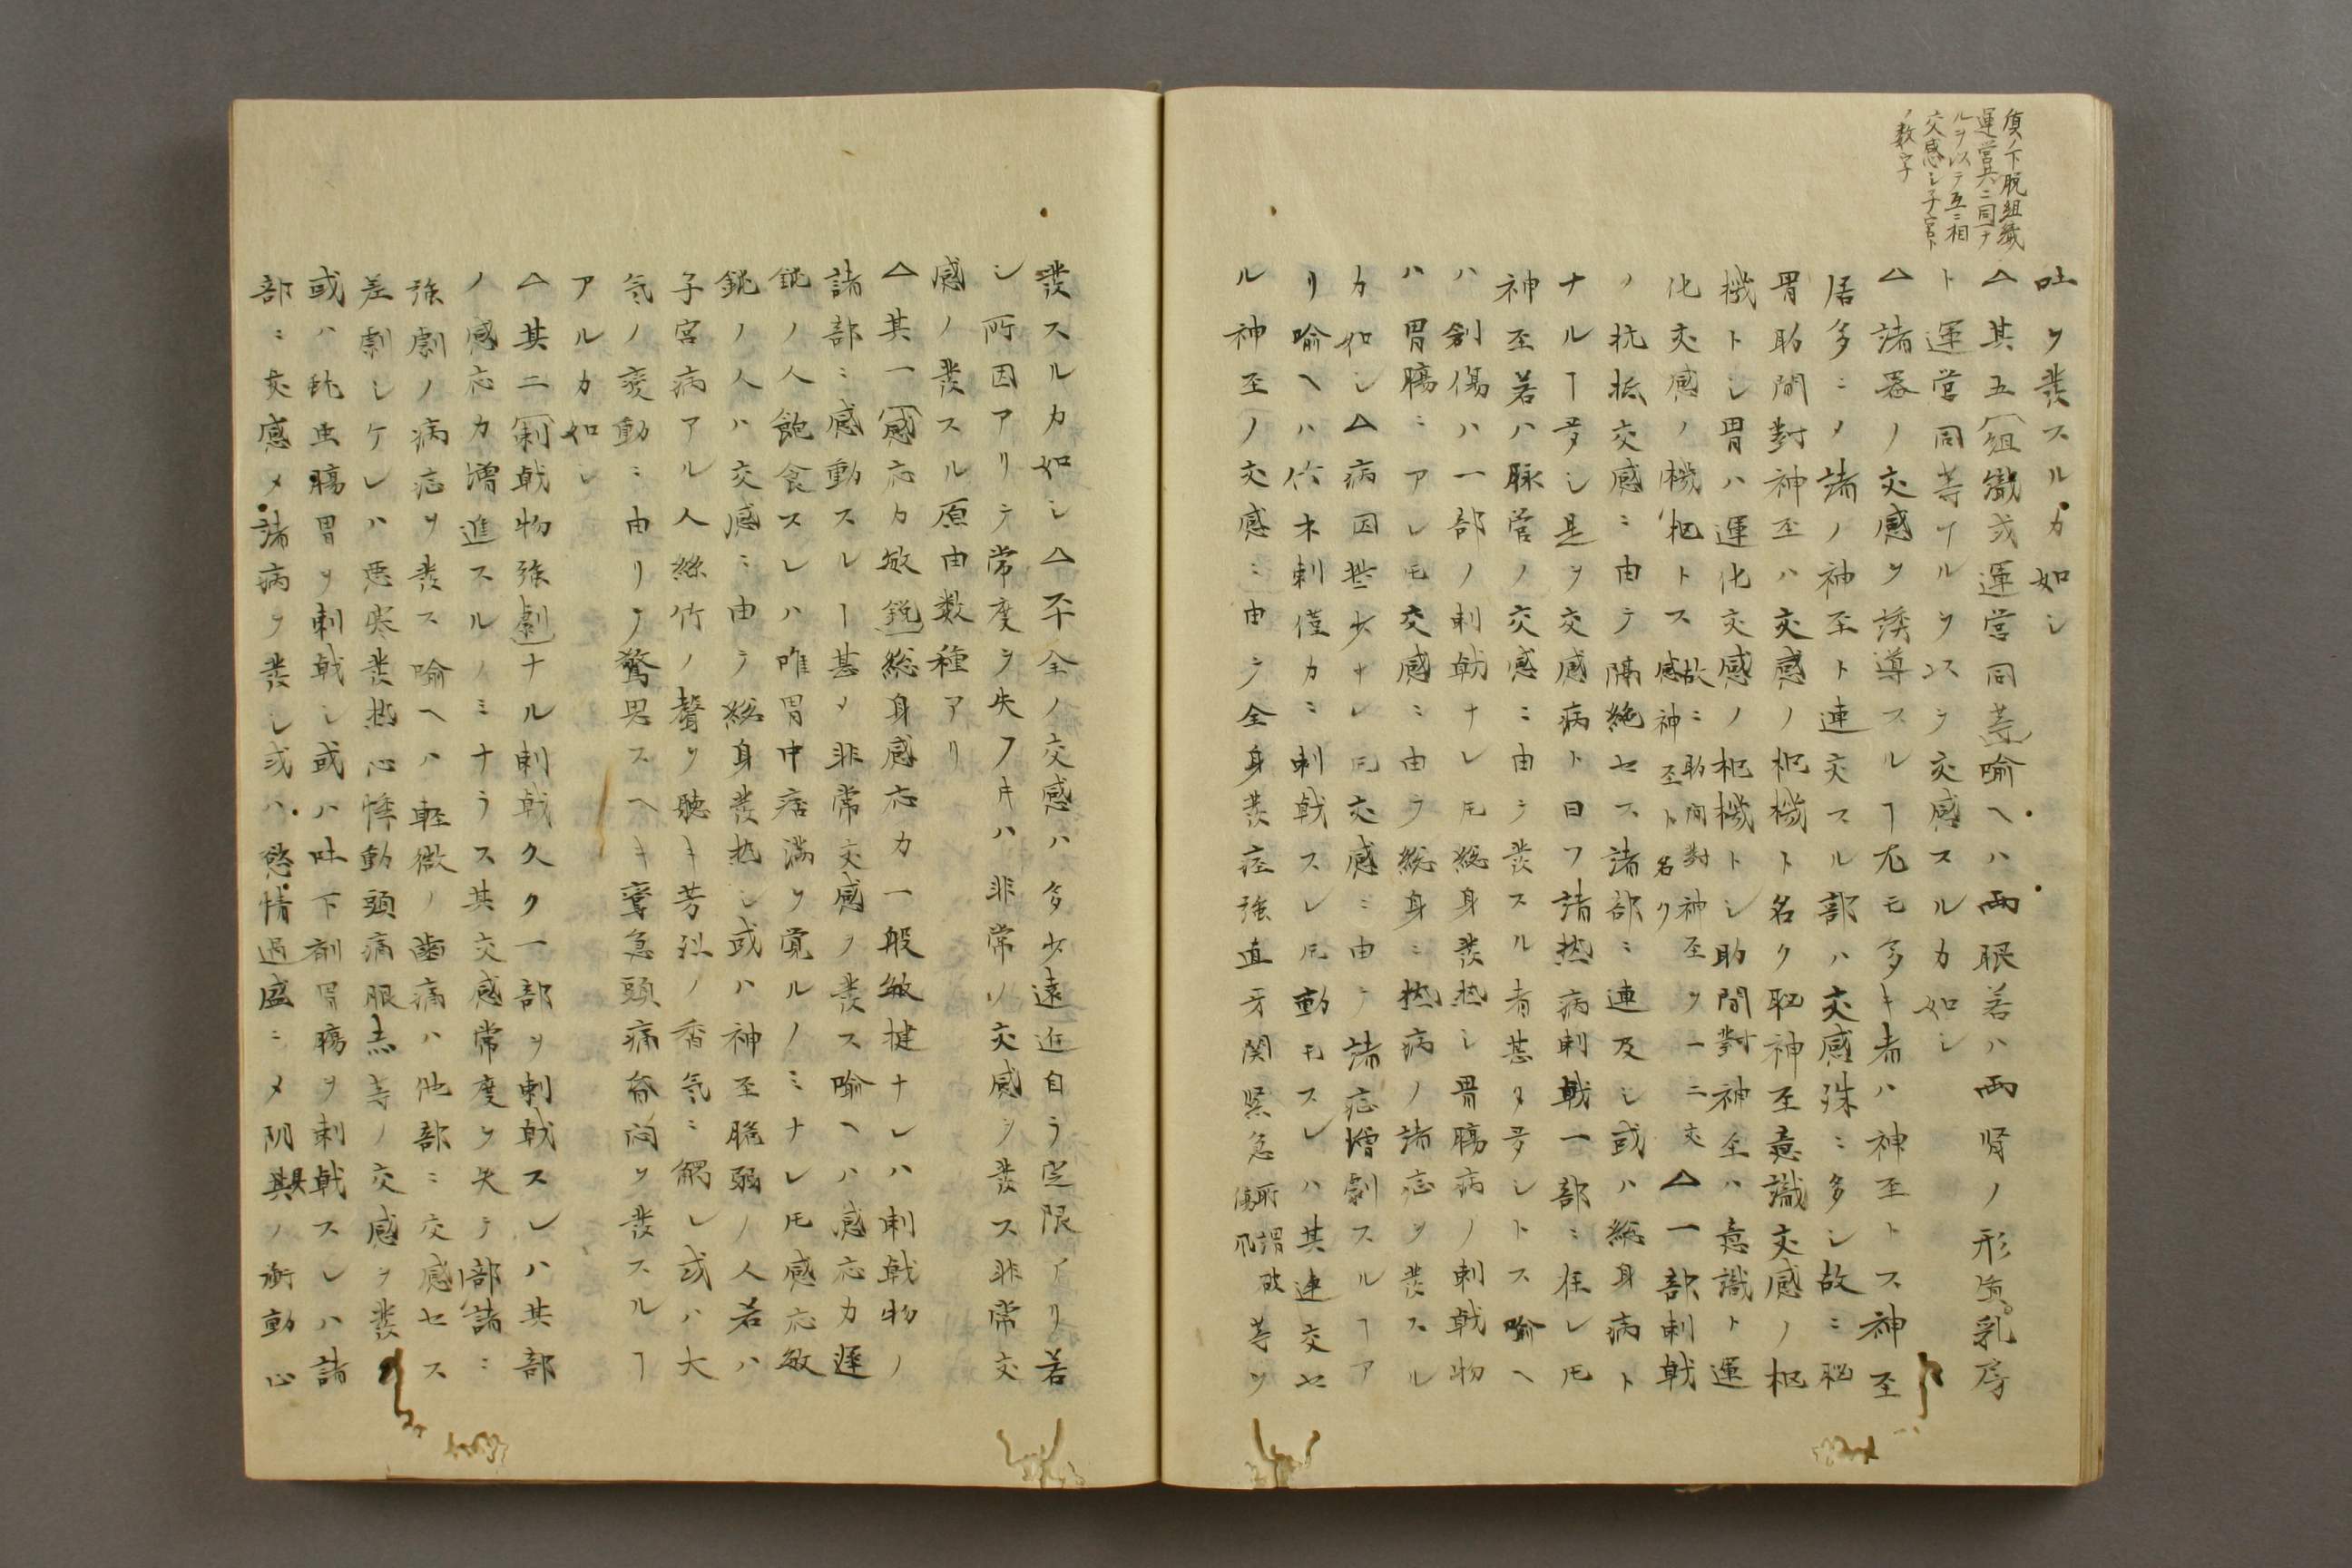 質ノ下脱組織
運営共ニ同ナ
ルヲ以テ互ニ相
交感シ子宮ト
ノ数字
吐ヲ発スルカ如シ
△其五組織或運営同等喩ヘハ両眼若ハ両腎ノ形質乳房
ト運営同等ナルヲ以テ交感スルカ如シ
△諸器ノ交感ヲ誘導スルヿ尤モ多キ者ハ神至トス神至
居多ニメ諸ノ神至ト連交スル部ハ交感殊ニ多シ故ニ脳
胃肋間對神至ハ交感ノ枢機ト名ク脳神至意識交感ノ枢
機トシ胃ハ運化交感ノ枢機トシ肋間對神至ハ意識ト運
化交感ノ機枢トス故ニ肋間對神至ヲ一ニ交感神至ト名ク△一部刺戟
ノ抗抵交感ニ由テ隔絶セス諸部ニ連及シ或ハ総身病ト
ナルヿ多シ是ヲ交感病ト曰フ諸热病刺戟一部ニ在レ𪜈
神至若ハ脉管ノ交感ニ由テ発スル者甚タ多シトス喩ヘ
ハ創傷ハ一部ノ刺戟ナレ𪜈総身発热シ胃腸病ノ刺戟物
ハ胃腸ニアレ𪜈交感ニ由テ総身ニ热病ノ諸症ヲ発スル
カ如シ△病因些少ナレ𪜈交感ニ由テ諸症増劇スルヿア
リ喩ヘハ竹木刺僅カニ刺戟スレ𪜈動モスレハ其連交セ
ル神至ノ交感ニ由テ全身発痙強直牙関緊急所謂破傷風等ヲ
発スルカ如シ△不全ノ交感ハ多少遠近自ラ定限アリ若
シ所因アリテ常度ヲ失フキハ非常ノ交感ヲ発ス非常交
感ノ発スル原由数種アリ
△其一感応力敏鋭総身感応力一般敏捷ナレハ刺戟物ノ
諸部ニ感動スルヿ甚メ非常交感ヲ発ス喩ヘハ感応力遅
鈍ノ人飽食スレハ唯胃中痞満ヲ覚ルノミナレ𪜈感応敏
鋭ノ人ハ交感ニ由テ総身発热シ或ハ神至脆弱ノ人若ハ
子宮病アル人絲竹ノ聲ヲ聴キ芳烈ノ香気ニ觸レ或ハ大
気ノ変動ニ由リテ驚愕スヘキ攣急頭痛昏悶ヲ発スルヿ
アルカ如シ
△其二刺戟物強劇ナル刺戟久ク一部ヲ刺戟スレハ其部
ノ感応力増進スルノミナラス其交感常度ヲ失テ部諸ニ
強劇ノ病症ヲ発ス喩ヘハ軽微ノ齒痛ハ他部ニ交感セス
差劇シケレハ悪寒発热心悸動頭痛眼赤等ノ交感ヲ発シ
或ハ蚘虫腸胃ヲ刺戟シ或ハ吐下剤胃腸ヲ刺戟スレハ諸
部ニ交感メ諸病ヲ発シ或ハ慾情過盛ニメ阴具ノ衝動心